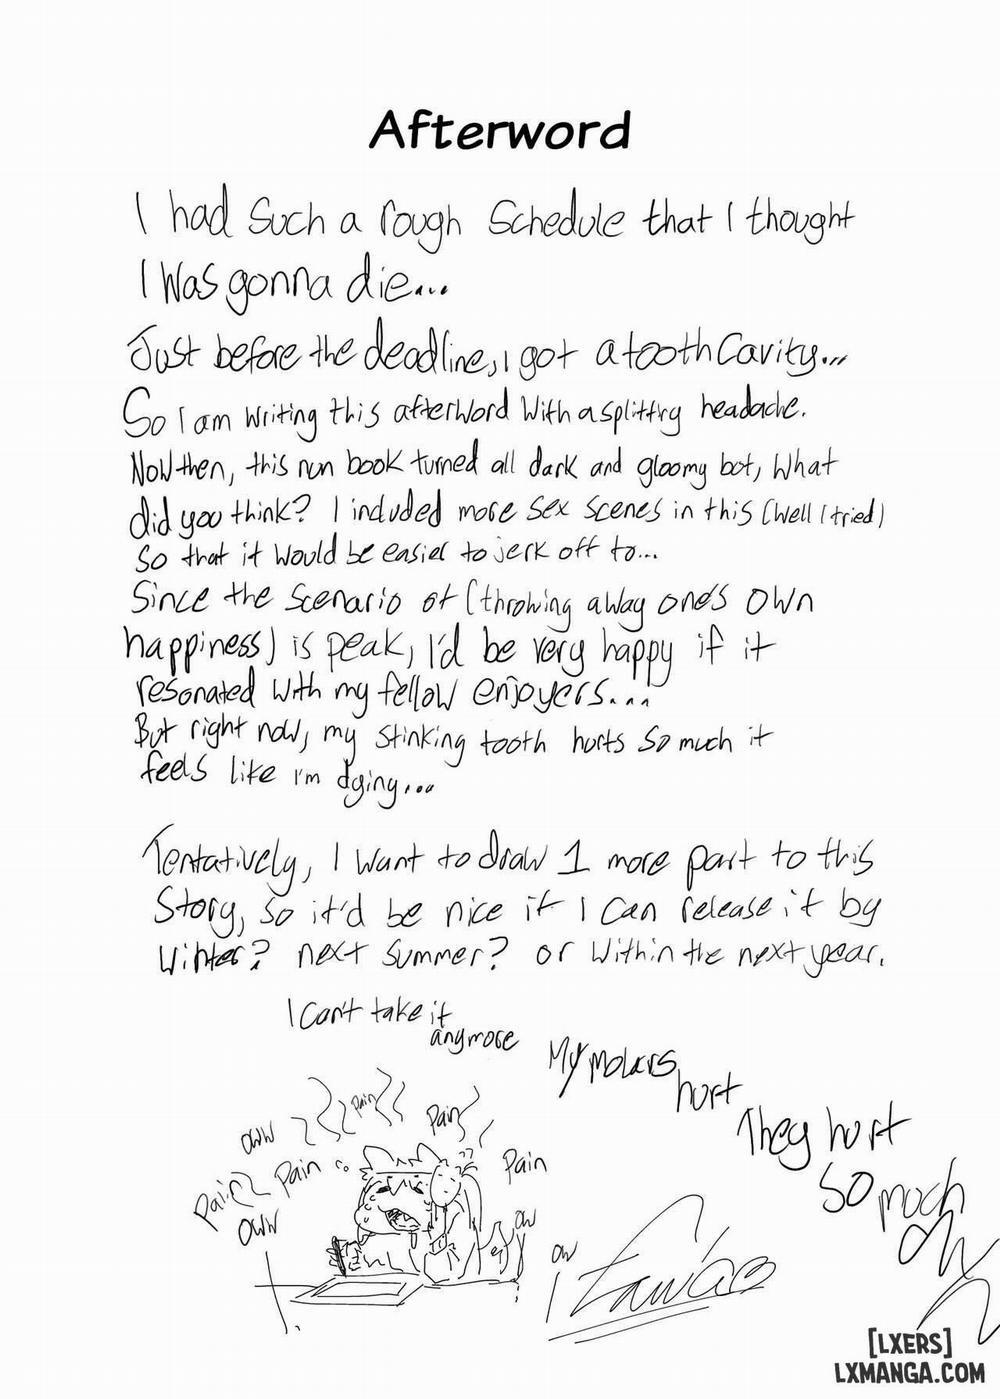 Afterword
I had Such a rough Schedule that I thought
I Was gonna die...
Just before the deadline, I got a tooth Cavity...
So I am writing this afterword with a splitting headache.
Now then, this nun book turned all dark and gloomy bot, What
did you think? I included more Sex Scenes in this (Well I tried)
so that it would be easier to jerk off to...
Since the Scenario of (throwing away one's own
happiness) is peak, I'd be very happy if it
resonated with my fellow enjoyers...
But right now, my stinking tooth hurts So much it
feels like I'm dying...
Tentatively, I want to draw 1 more part to this
Story, So it'd be nice if I can release it by
Winter? next Summer? or within the next year.
I Can't take it
anymore
My Molars
hurt
They hurt
So much
Ow
Pain
Pain
Oww
Pain
Pain
Pain
Oww
ow
ow
[LXERS]
LXMANGA.COM